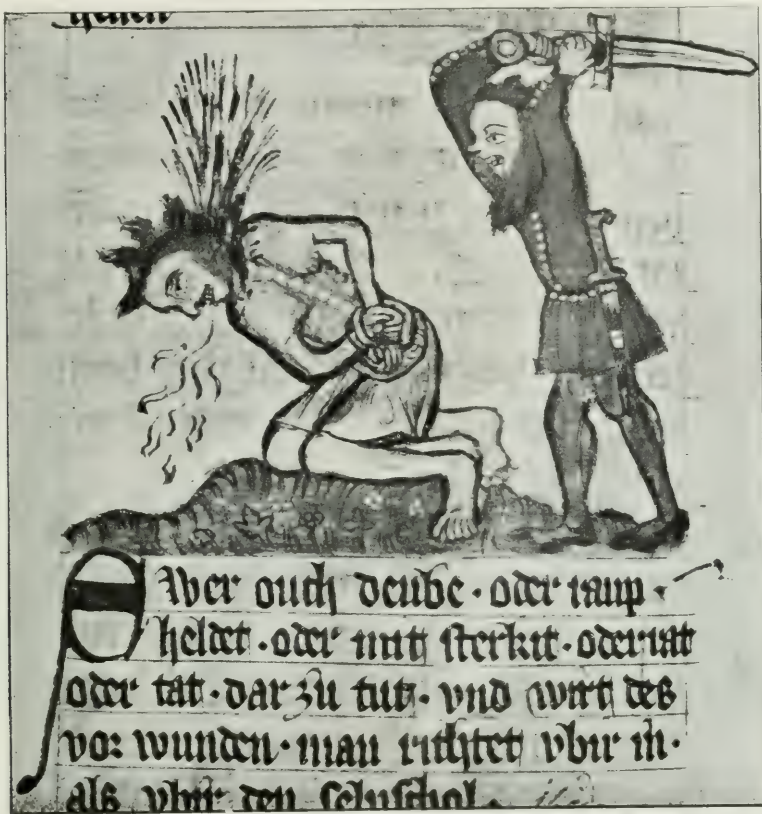 Wer ouch deube · oder raup ·
heldet · oder mit sterkit · oder rat
oder tat · dar zu tut · vnd wirt des
vor wunden · man richtet vbir in ·
als vbir den selbschol ·